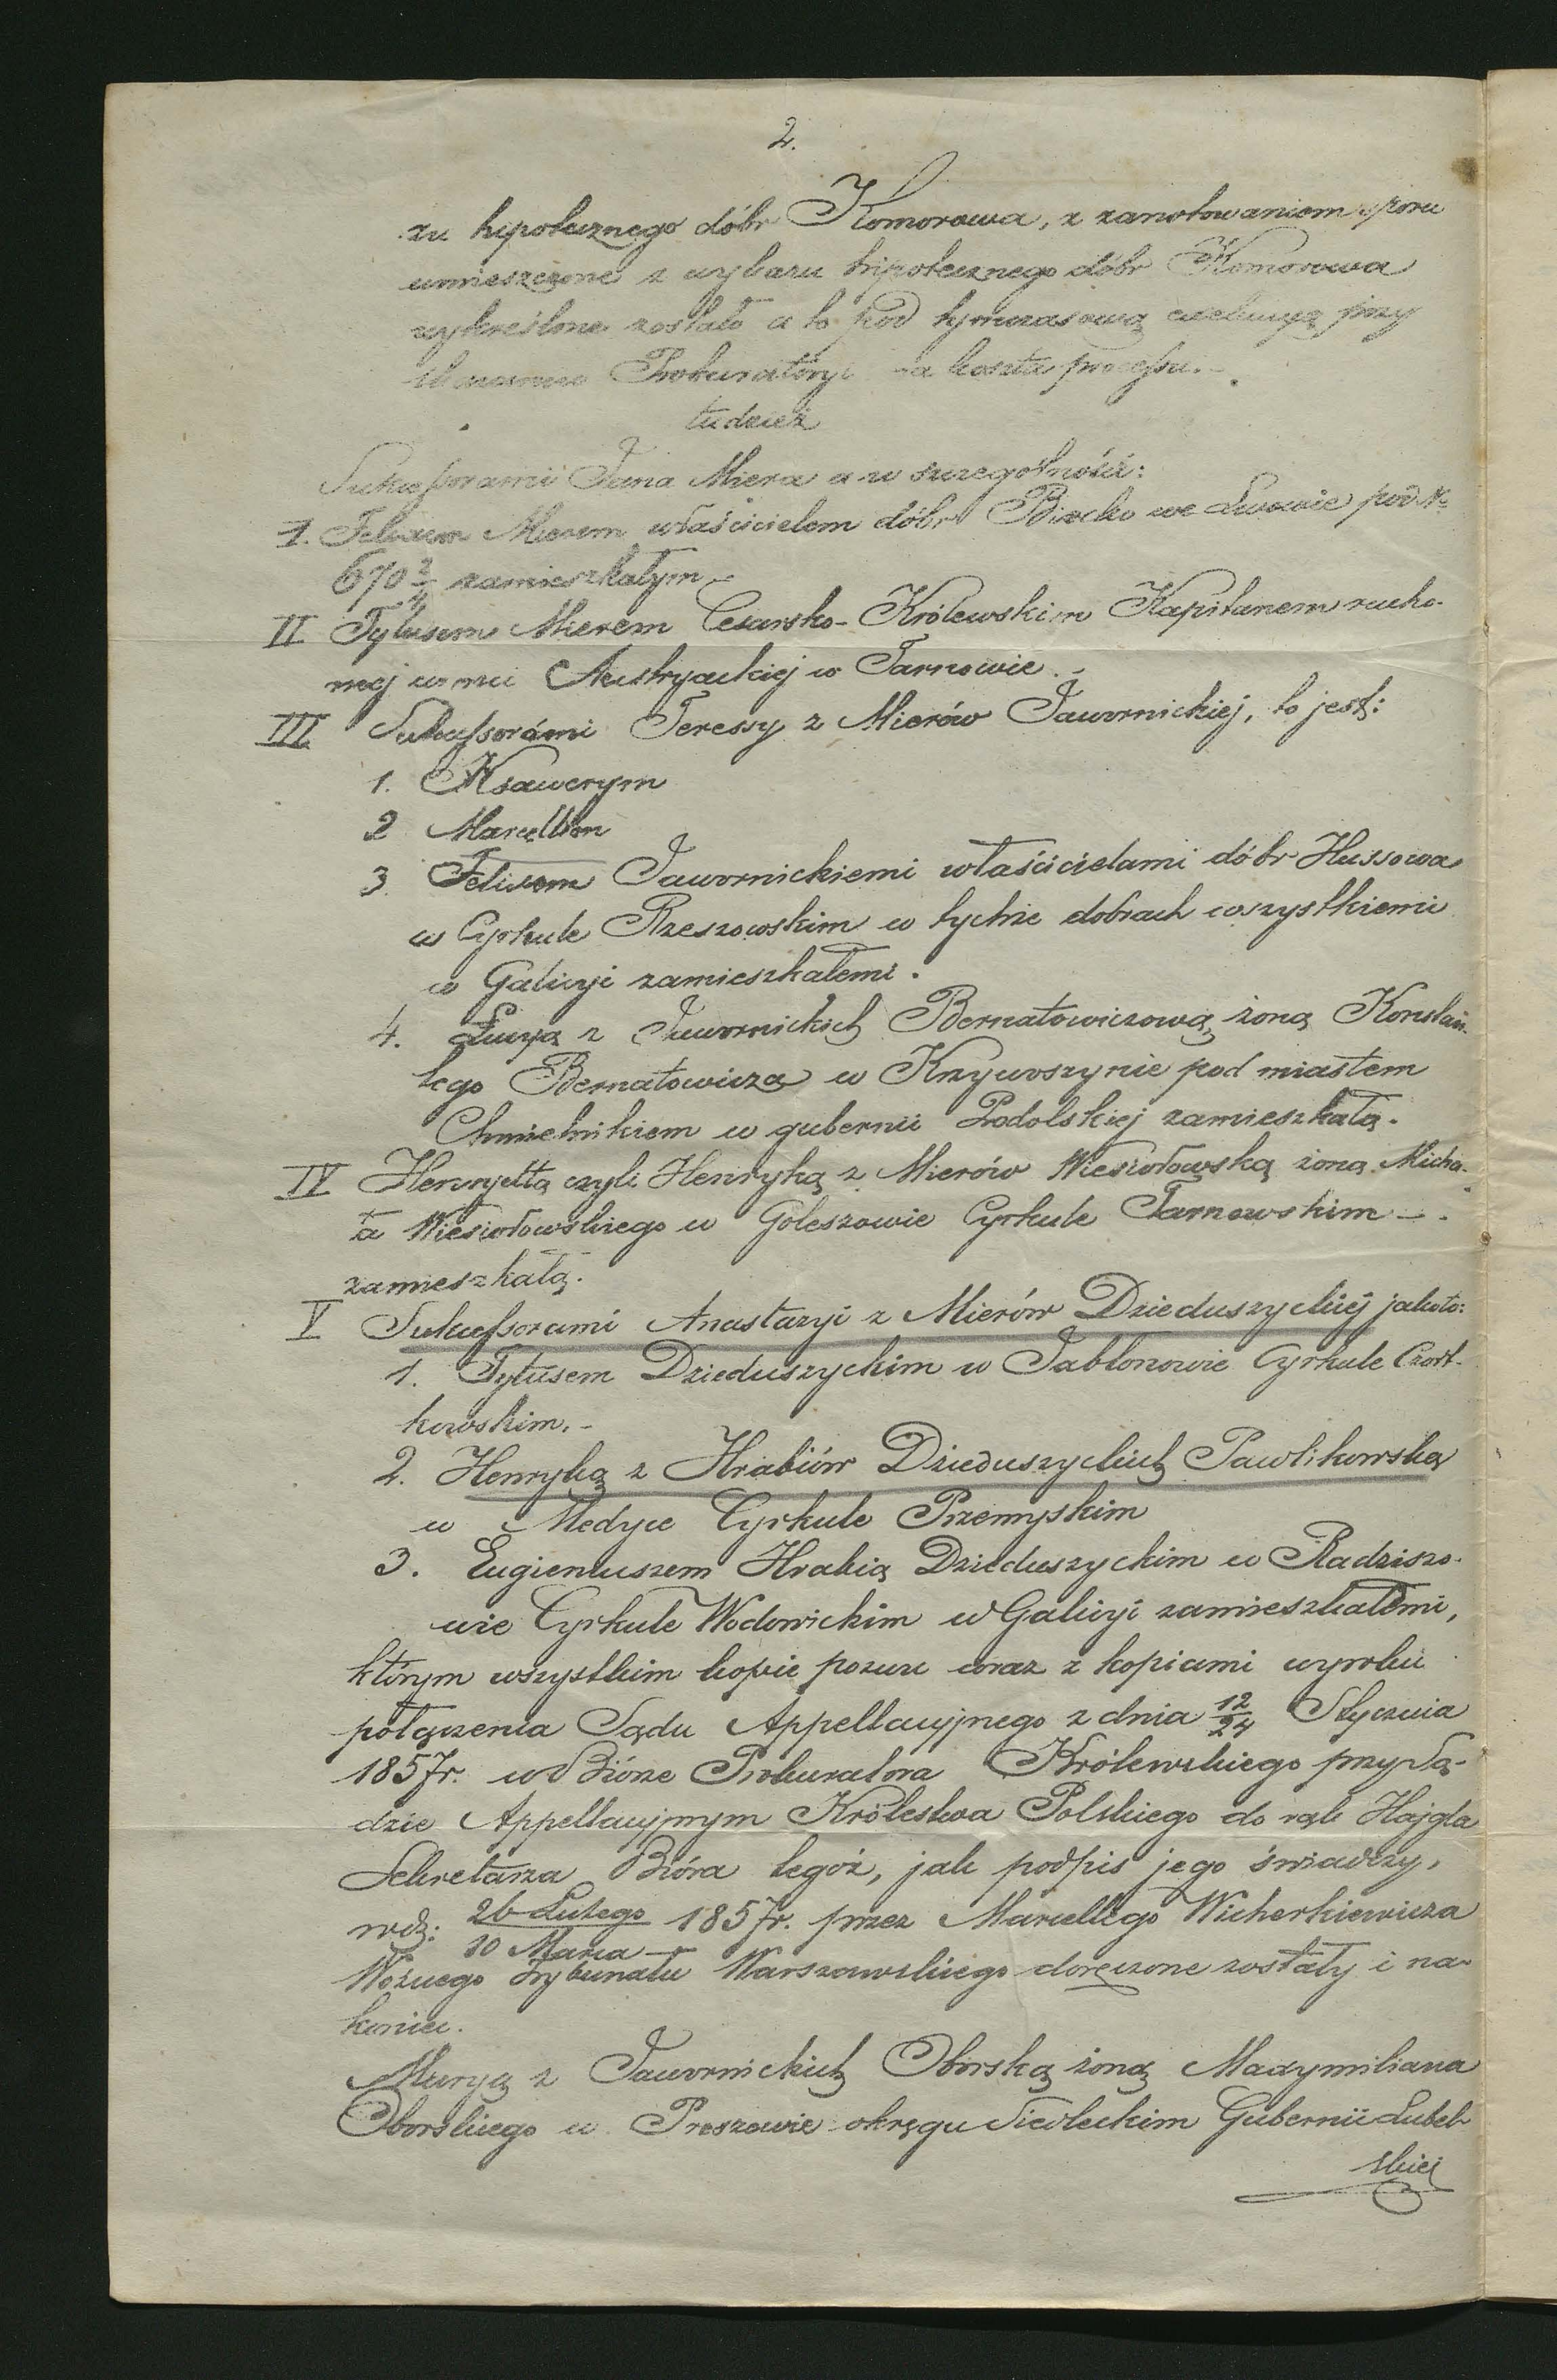 2.
zu hipotecznego dóbr Komorowa, z zanotowaniem sporu
umieszczone z wykazu hipotecznego dóbr Komorowa
wykreślone zostało a to pod tymczasową exekucyą przy
skazaniu Prokuratoryi na koszta processu.
tudzież
Sukcessorami Jana Miera a w szczególności:
1. Felixem Mierem właścicielem dóbr Bircko we Lwowie pod Nr
670 2/4 zamieszkałym
II Tytusem Mierem Cesarsko-Królewskim Kapitanem rucho-
mej armii Austryackiej w Tarnowie.
III Sukcessorámi Teressy z Mierów Jawornickiej, to jest:
1. Ksawerym
2 Marcellim
3. Felixem Jawornickiemi właścicielami dóbr Hussowa
w Cyrkule Rzeszowskim w tychże dobrach wszystkiemi
w Galicyi zamieszkałemi.
4. Łucyą z Jawornickich Bernatowiczową żoną Konstan-
tego Bernatowicza w Krzywoszynie pod miastem
Chmielnikiem w gubernii Podolskiej zamieszkałą.
IV Henryettą czyli Henryką z Mierów Wiesiołowską żoną Micha-
ła Wiesiołowskiego w Goleszowie Cyrkule Tarnowskim
zamieszkałą.
V Sukcessorami Anastazyi z Mierów Dzieduszyckiéj jakoto:
1. Tytusem Dzieduszyckim w Jabłonowie Cyrkule Czort-
kowskim.
2. Henryką z Hrabiów Dzieduszyckich Pawlikowską
w Medyce Cyrkule Przemyskim
3. Eugieniuszem Hrabią Dzieduszyckim w Radziszo-
wie Cyrkule Wodowickim w Galicyi zamieszkałemi,
którym wszystkim kopie pozwu wraz z kopiami wyroku
połączenia Sądu Appellacyjnego z dnia 12/24 Stycznia
1857r. w Biórze Prokuratora Królewskiego przy Są-
dzie Appellacyjnym Królestwa Polskiego do rąk Hajgla
Sekretarza Bióra tegoż, jak podpis jego świadczy,
wd: 26 Lutego/10 Marca 1857r. przez Marcellego Wicherkiewicza
Woźnego Trybunału Warszawskiego doręczone zostały i na
koniec.
Maryą z Jawornickich Oborską żoną Maxymiliana
Oborskiego w Proszewie okręgu Siedleckim Gubernii Lubel-
skiej